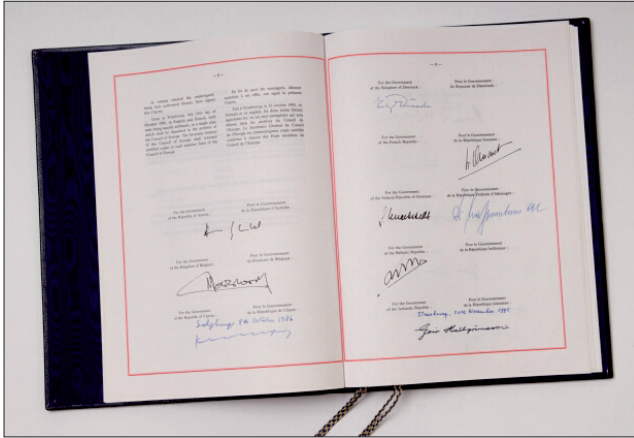 In witness whereof the undersigned,
being duly authorised thereto, have signed
this Charter.
Done at Strasbourg, this 15th day of
October 1985, in English and French, both
texts being equally authentic, in a single copy
which shall be deposited in the archives of
the Council of Europe. The Secretary General
of the Council of Europe shall transmit
certified copies to each member State of the
Council of Europe.
En foi de quoi, les soussignés, dûment
autorisés à cet effet, ont signé la présente
Charte.
Fait à Strasbourg, le 15 octobre 1985, en
français et en anglais, les deux textes faisant
également foi, en un seul exemplaire qui sera
déposé dans les archives du Conseil de
l'Europe. Le Secrétaire Général du Conseil
de l'Europe en communiquera copie certifiée
conforme à chacun des Etats membres du
Conseil de l'Europe.
For the Government
of the Republic of Austria:
Pour le Gouvernement
de la République d'Autriche:
For the Government
of the Kingdom of Belgium:
Pour le Gouvernement
du Royaume de Belgique:
For the Government
of the Republic of Cyprus:
Pour le Gouvernement
de la République de Chypre:
Salzburg 8th October 1986
For the Government
of the Kingdom of Denmark:
Pour le Gouvernement
du Royaume de Danemark:
For the Government
of the French Republic:
Pour le Gouvernement
de la République française:
For the Government
of the Federal Republic of Germany:
Pour le Gouvernement
de la République Fédérale d'Allemagne:
For the Government
of the Hellenic Republic:
Pour le Gouvernement
de la République hellénique:
For the Government
of the Icelandic Republic:
Pour le Gouvernement
de la République islandaise:
Strasbourg, 20th November 1985